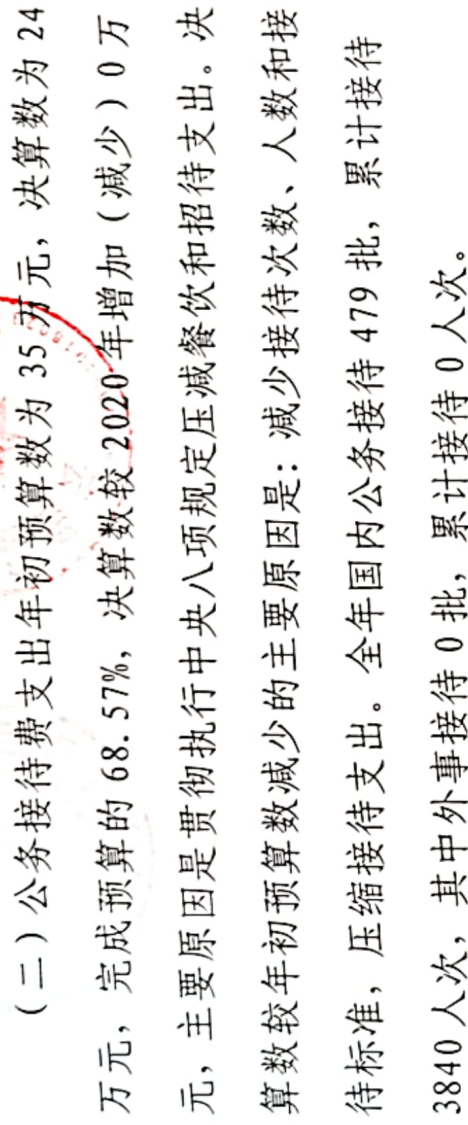 （二）公务接待费支出年初预算数为 35 万元，决算数为 24
万元，完成预算的 68.57%，决算数较 2020 年增加（减少）0 万
元，主要原因是贯彻执行中央八项规定压减餐饮和招待支出。决
算数较年初预算数减少的主要原因是：减少接待次数、人数和接
待标准，压缩接待支出。全年国内公务接待 479 批，累计接待
3840 人次，其中外事接待 0 批，累计接待 0 人次。